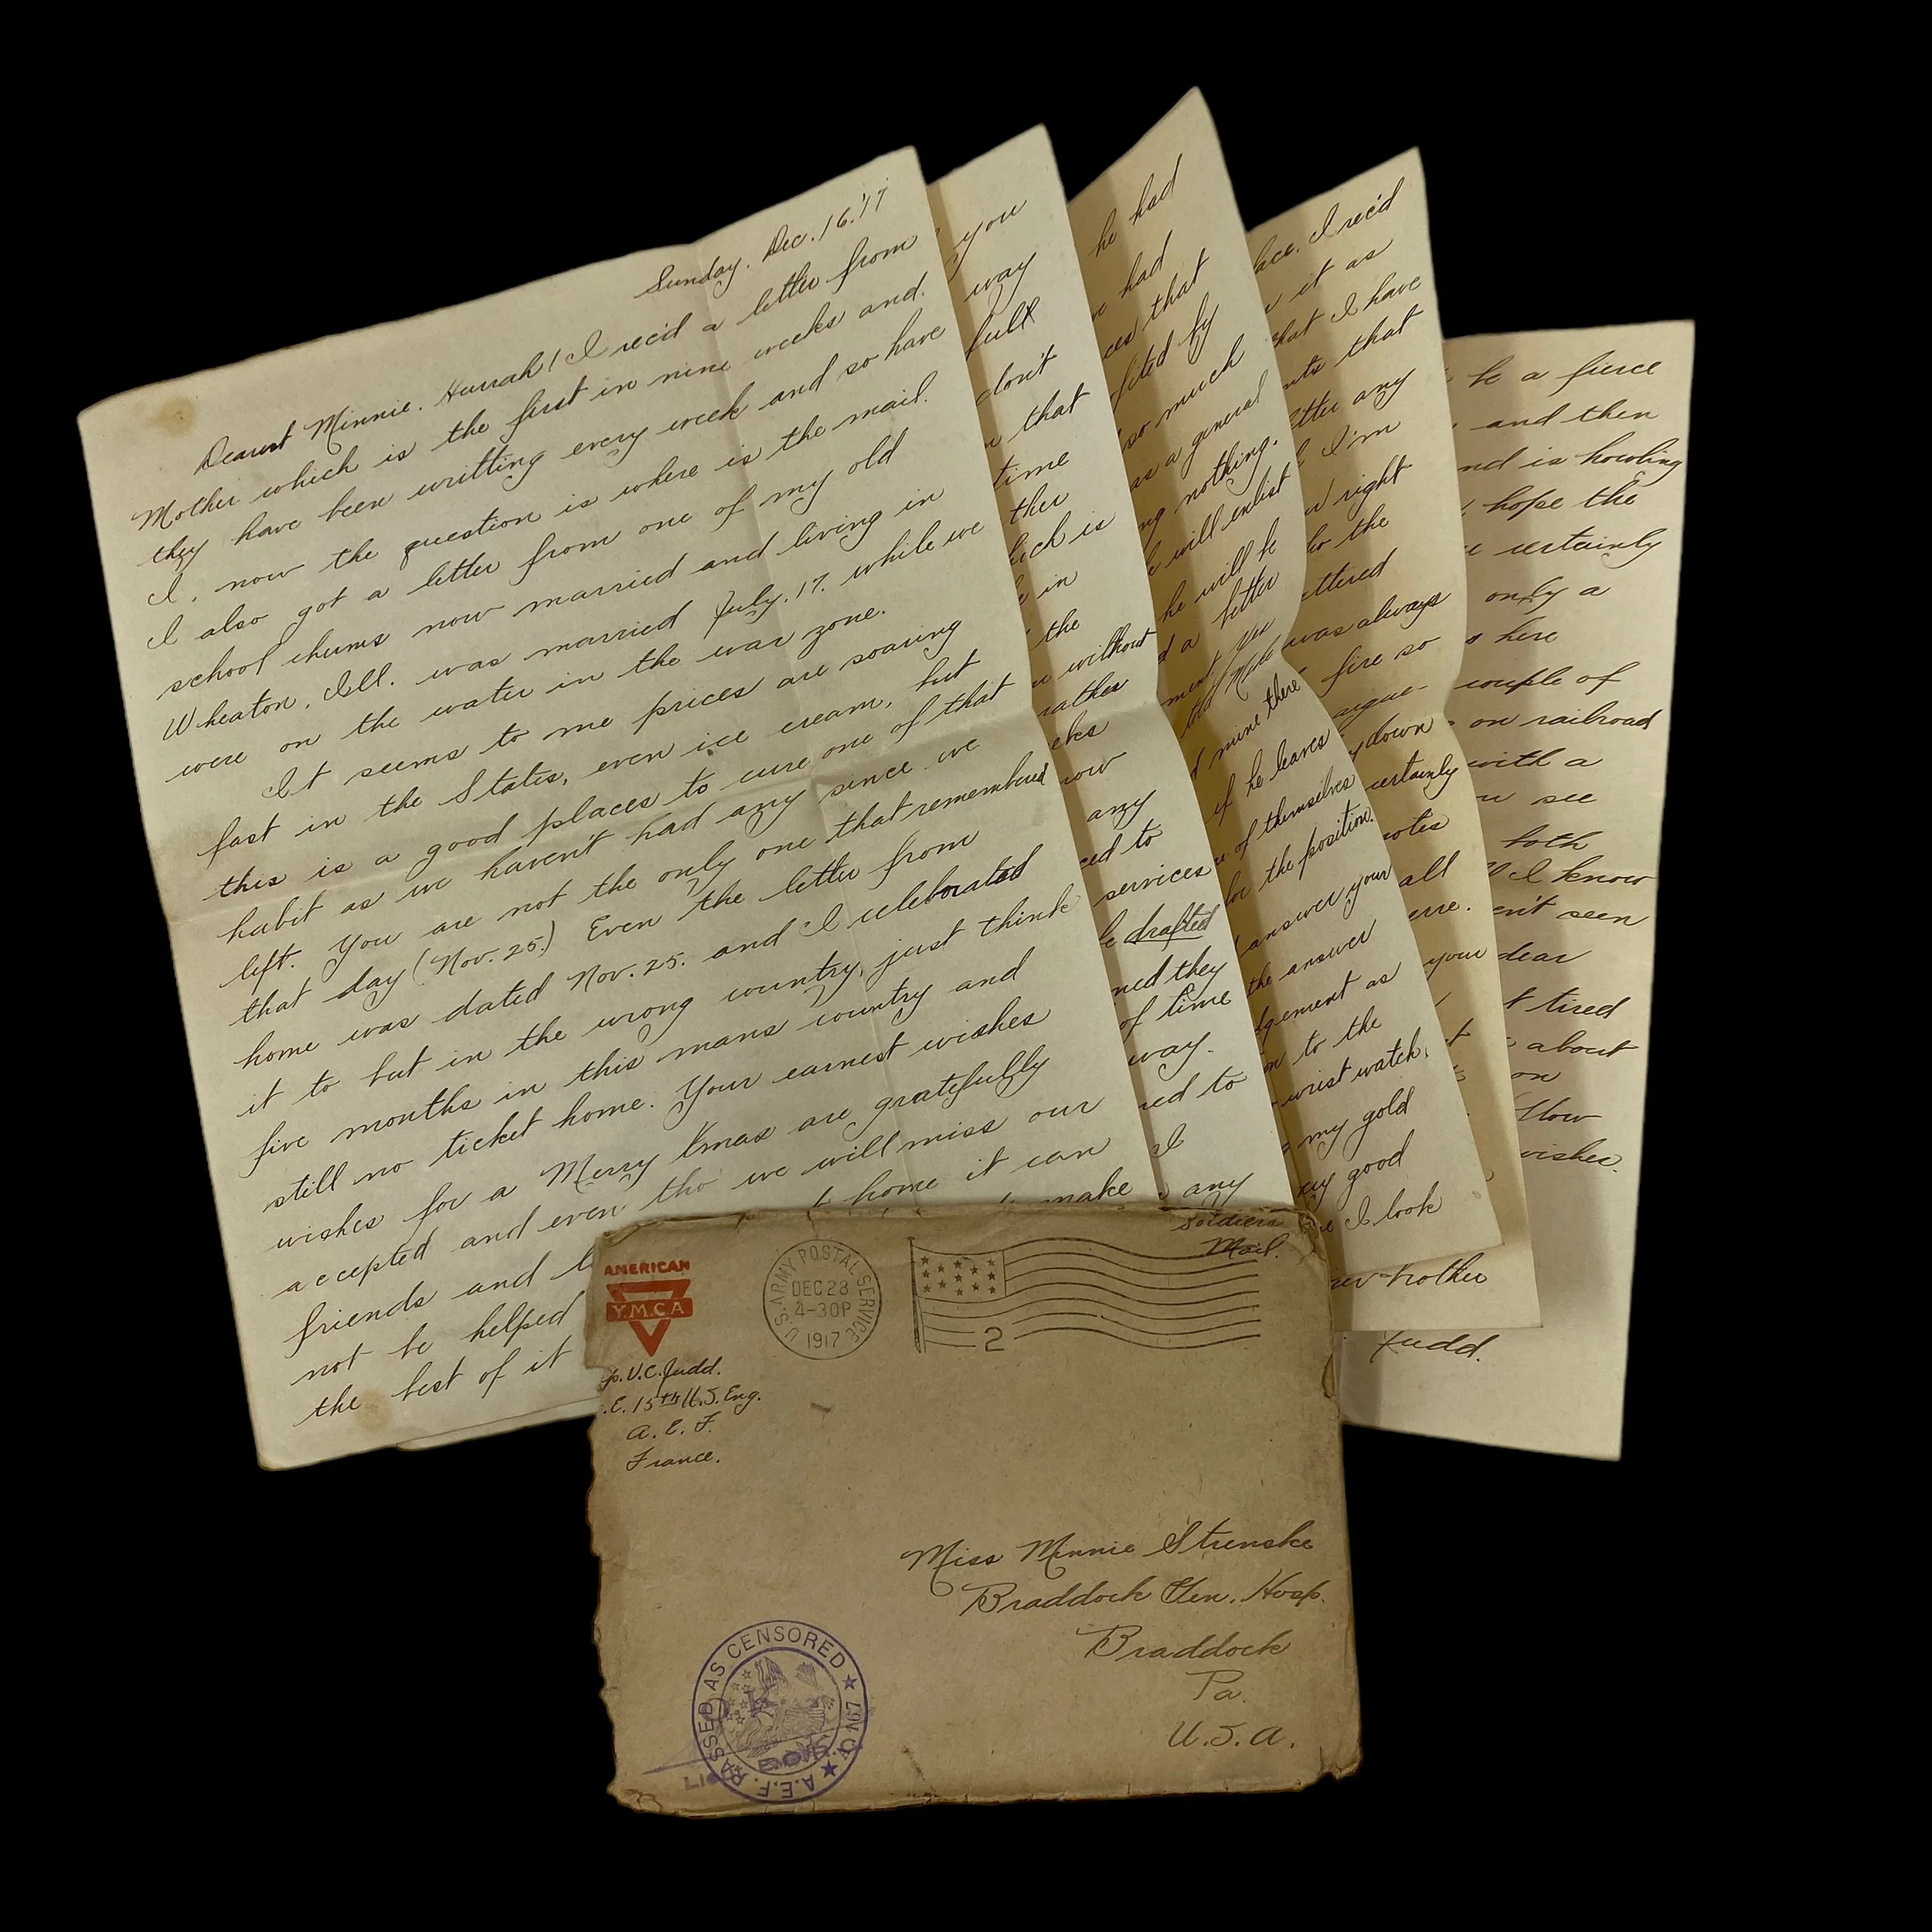 Sunday. Dec. 16.'17
Dearest Minnie. Hurrah! I rec'd a letter from
Mother which is the first in nine weeks and.
they have been writting every week and so have
I, now the question is where is the mail.
I also got a letter from one of my old
school chums now married and living in
Wheaton, Ill. was married July. 17. while we
were on the water in the war zone.
It seems to me prices are soaring
fast in the States, even ice cream, but
this is a good places to cure one of that
habit as we haven't had any since we
left. You are not the only one that remembered
that day (Nov. 25.) Even the letter from
home was dated Nov. 25. and I celebrated
it to but in the wrong country, just think
five months in this mans country and
still no ticket home. Your earnest wishes
wishes for a Merry Xmas are gratefully
accepted and even tho we will miss our
friends and home it can
not be helped make
the best of it
you
way
don't
that
time
ther
hich is
in
the
without
rather
eks
now
any
ced to
services
be drafted
ned they
of time
way.
red to
I
any
he had
had
ces that
fited by
so much
as a general
ng nothing.
will enlist
he will be
d a letter
ment. You
and Nole
d mine there
if he leaves
of themselves
for the position.
answer your
the answer
dgement as
on to the
wrist watch.
my gold
my good
I look
lace. I rec'd
it as
that I have
nts that
etter any
I'm
right
to the
ettered
was always
fire so
argue-
down
certainly
votes
all
erre.
your
be a fierce
and then
nd is howling
hope the
certainly
only a
s here
couple of
on railroad
with a
see
both
I know
en't seen
dear
t tired
about
on
How
wishes.
brother
Judd.
AMERICAN
Y.M.C.A
U.S. ARMY POSTAL SERVICE
DEC 28
4-30P
1917
2
Soldiers
Mail.
p. V.C. Judd.
.E. 15th U.S. Eng.
A. E. F.
France.
Miss Minnie Strenske
Braddock Gen. Hosp.
Braddock
Pa.
U.S.A.
PASSED AS CENSORED ★ A.E.F. ★
OK